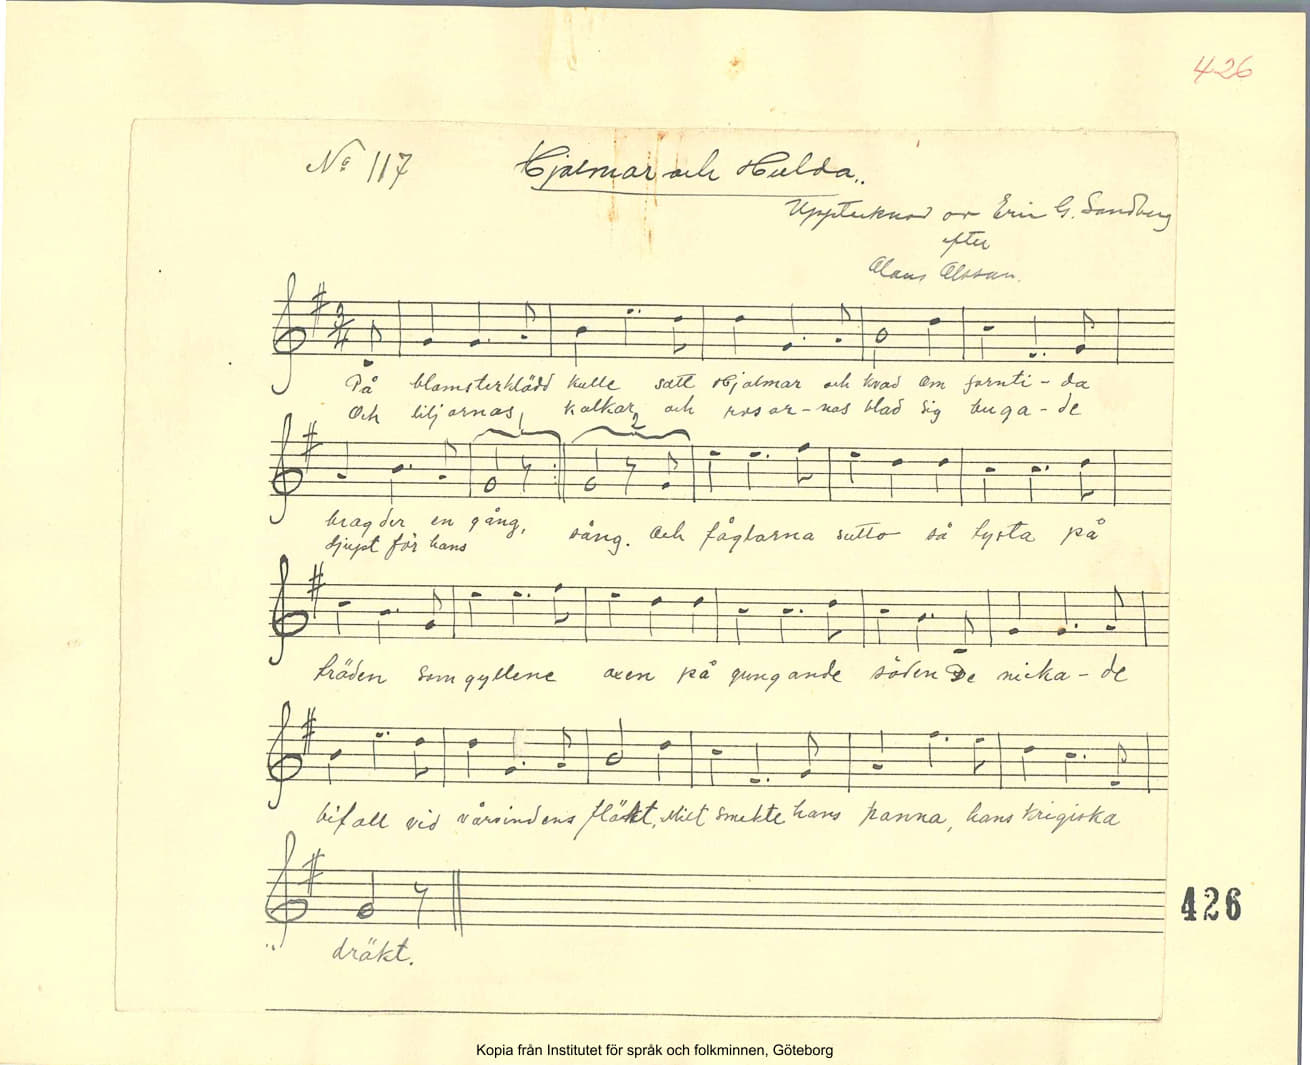 426
No 117
Hjalmar och Hulda.
Upptecknad av Erin G. Sandberg
efter
Claus Olsson.
3
4
På blomsterklädd kulle satt Hjalmar och kvad Om fornti-da
Och liljornas kalkar och rosor-nas blad sig buga-de
1
2
bragder en gång,
djupt för hans
sång. Och fåglarna sutto så lysta på
träden som gyllene axen på gungande säden De nicka-de
bifall vid vårvindens fläkt, Milt smekte hans panna, hans krigiska
dräkt.
426
Kopia från Institutet för språk och folkminnen, Göteborg